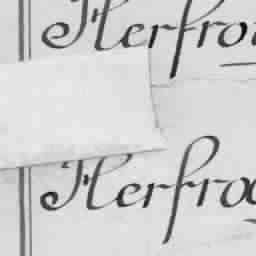 Herfro
Herfro